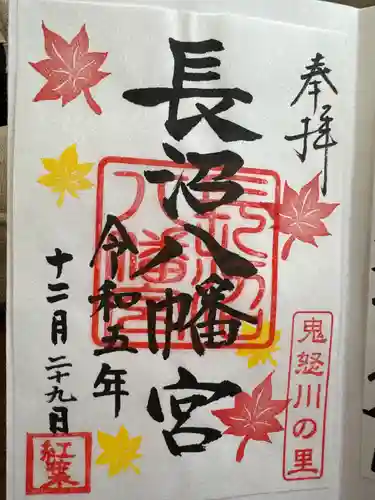 奉拝
長沼八幡宮
長沼八幡宮
鬼経川の里
令和五年
十二月二十九日
紅葉